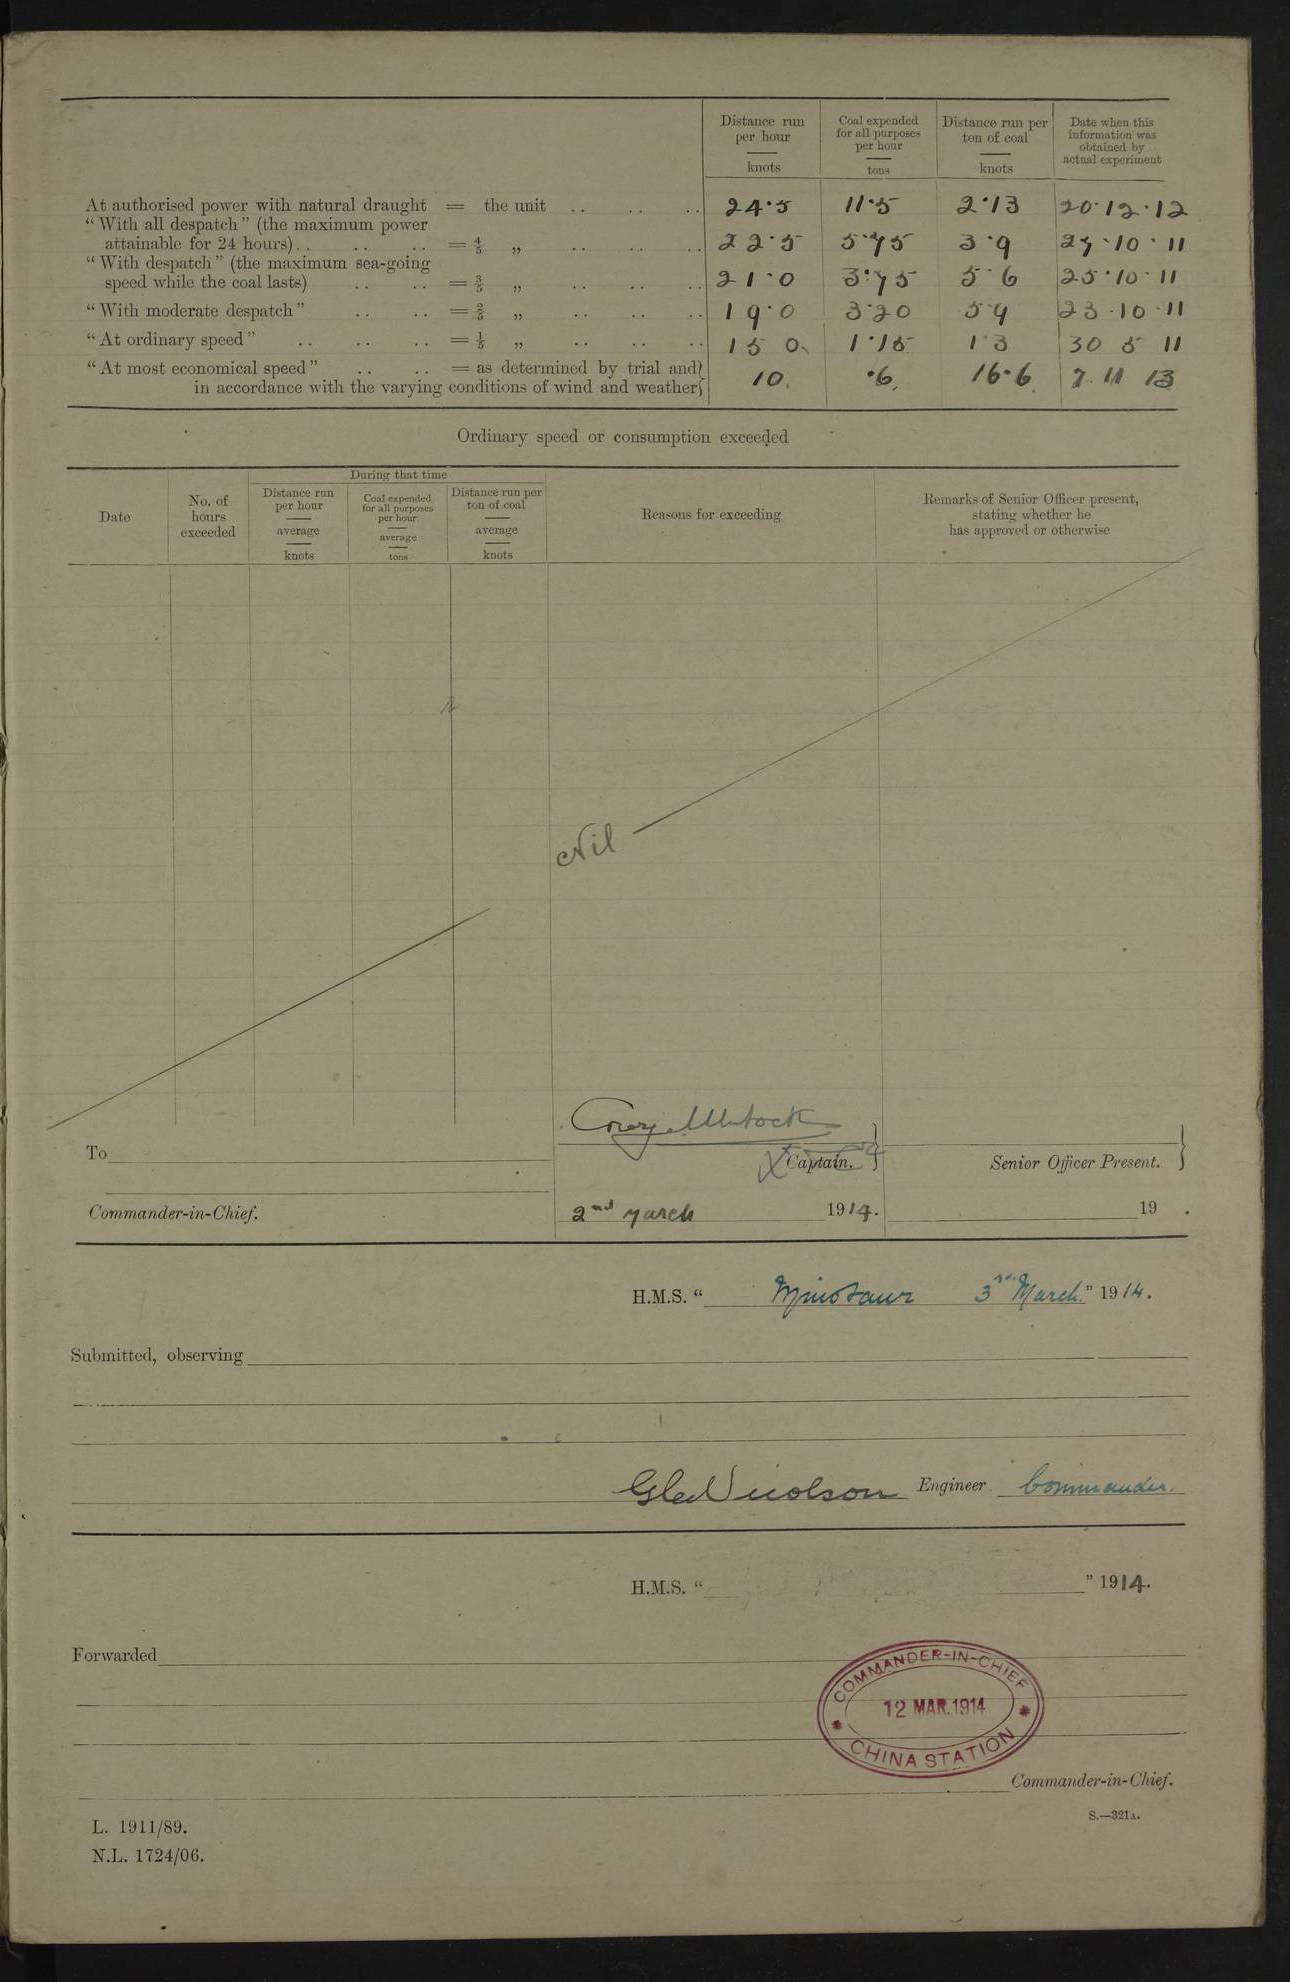 Distance run per hour
knots
Coal expended for all purposes per hour
tons
Distance run per ton of coal
knots
Date when this information was obtained by actual experiment
At authorised power with natural draught = the unit .. .. .. 24·5 11·5 2·13 20·12·12
“ With all despatch ” (the maximum power
attainable for 24 hours) .. .. .. = 4/5 „ .. .. .. 22·5 5·75 3·9 27·10·11
“ With despatch ” (the maximum sea-going
speed while the coal lasts) .. .. = 3/5 „ .. .. .. 21·0 3·75 5·6 25·10·11
“ With moderate despatch ” .. .. = 2/5 „ .. .. .. 19·0 3·20 5 9 23·10·11
“ At ordinary speed ” .. .. .. = 1/5 „ .. .. .. 15 0 1·15 13 30 5 11
“ At most economical speed ” .. .. = as determined by trial and
in accordance with the varying conditions of wind and weather 10. ·6. 16·6 7 11 13
Ordinary speed or consumption exceeded
Date
No. of hours exceeded
During that time
Distance run per hour
average
knots
Coal expended for all purposes per hour
average
tons
Distance run per ton of coal
average
knots
Reasons for exceeding
Remarks of Senior Officer present, stating whether he has approved or otherwise
Nil
To
Captain.
Senior Officer Present.
Commander-in-Chief.
2nd March 1914.
19 .
H.M.S. “ Minotaur 3rd March. ” 1914.
Submitted, observing
Nicolson Engineer Commander.
H.M.S. “ ” 1914.
Forwarded
COMMANDER-IN-CHIEF
12 MAR. 1914
CHINA STATION
Commander-in-Chief.
S.—321A.
L. 1911/89.
N.L. 1724/06.